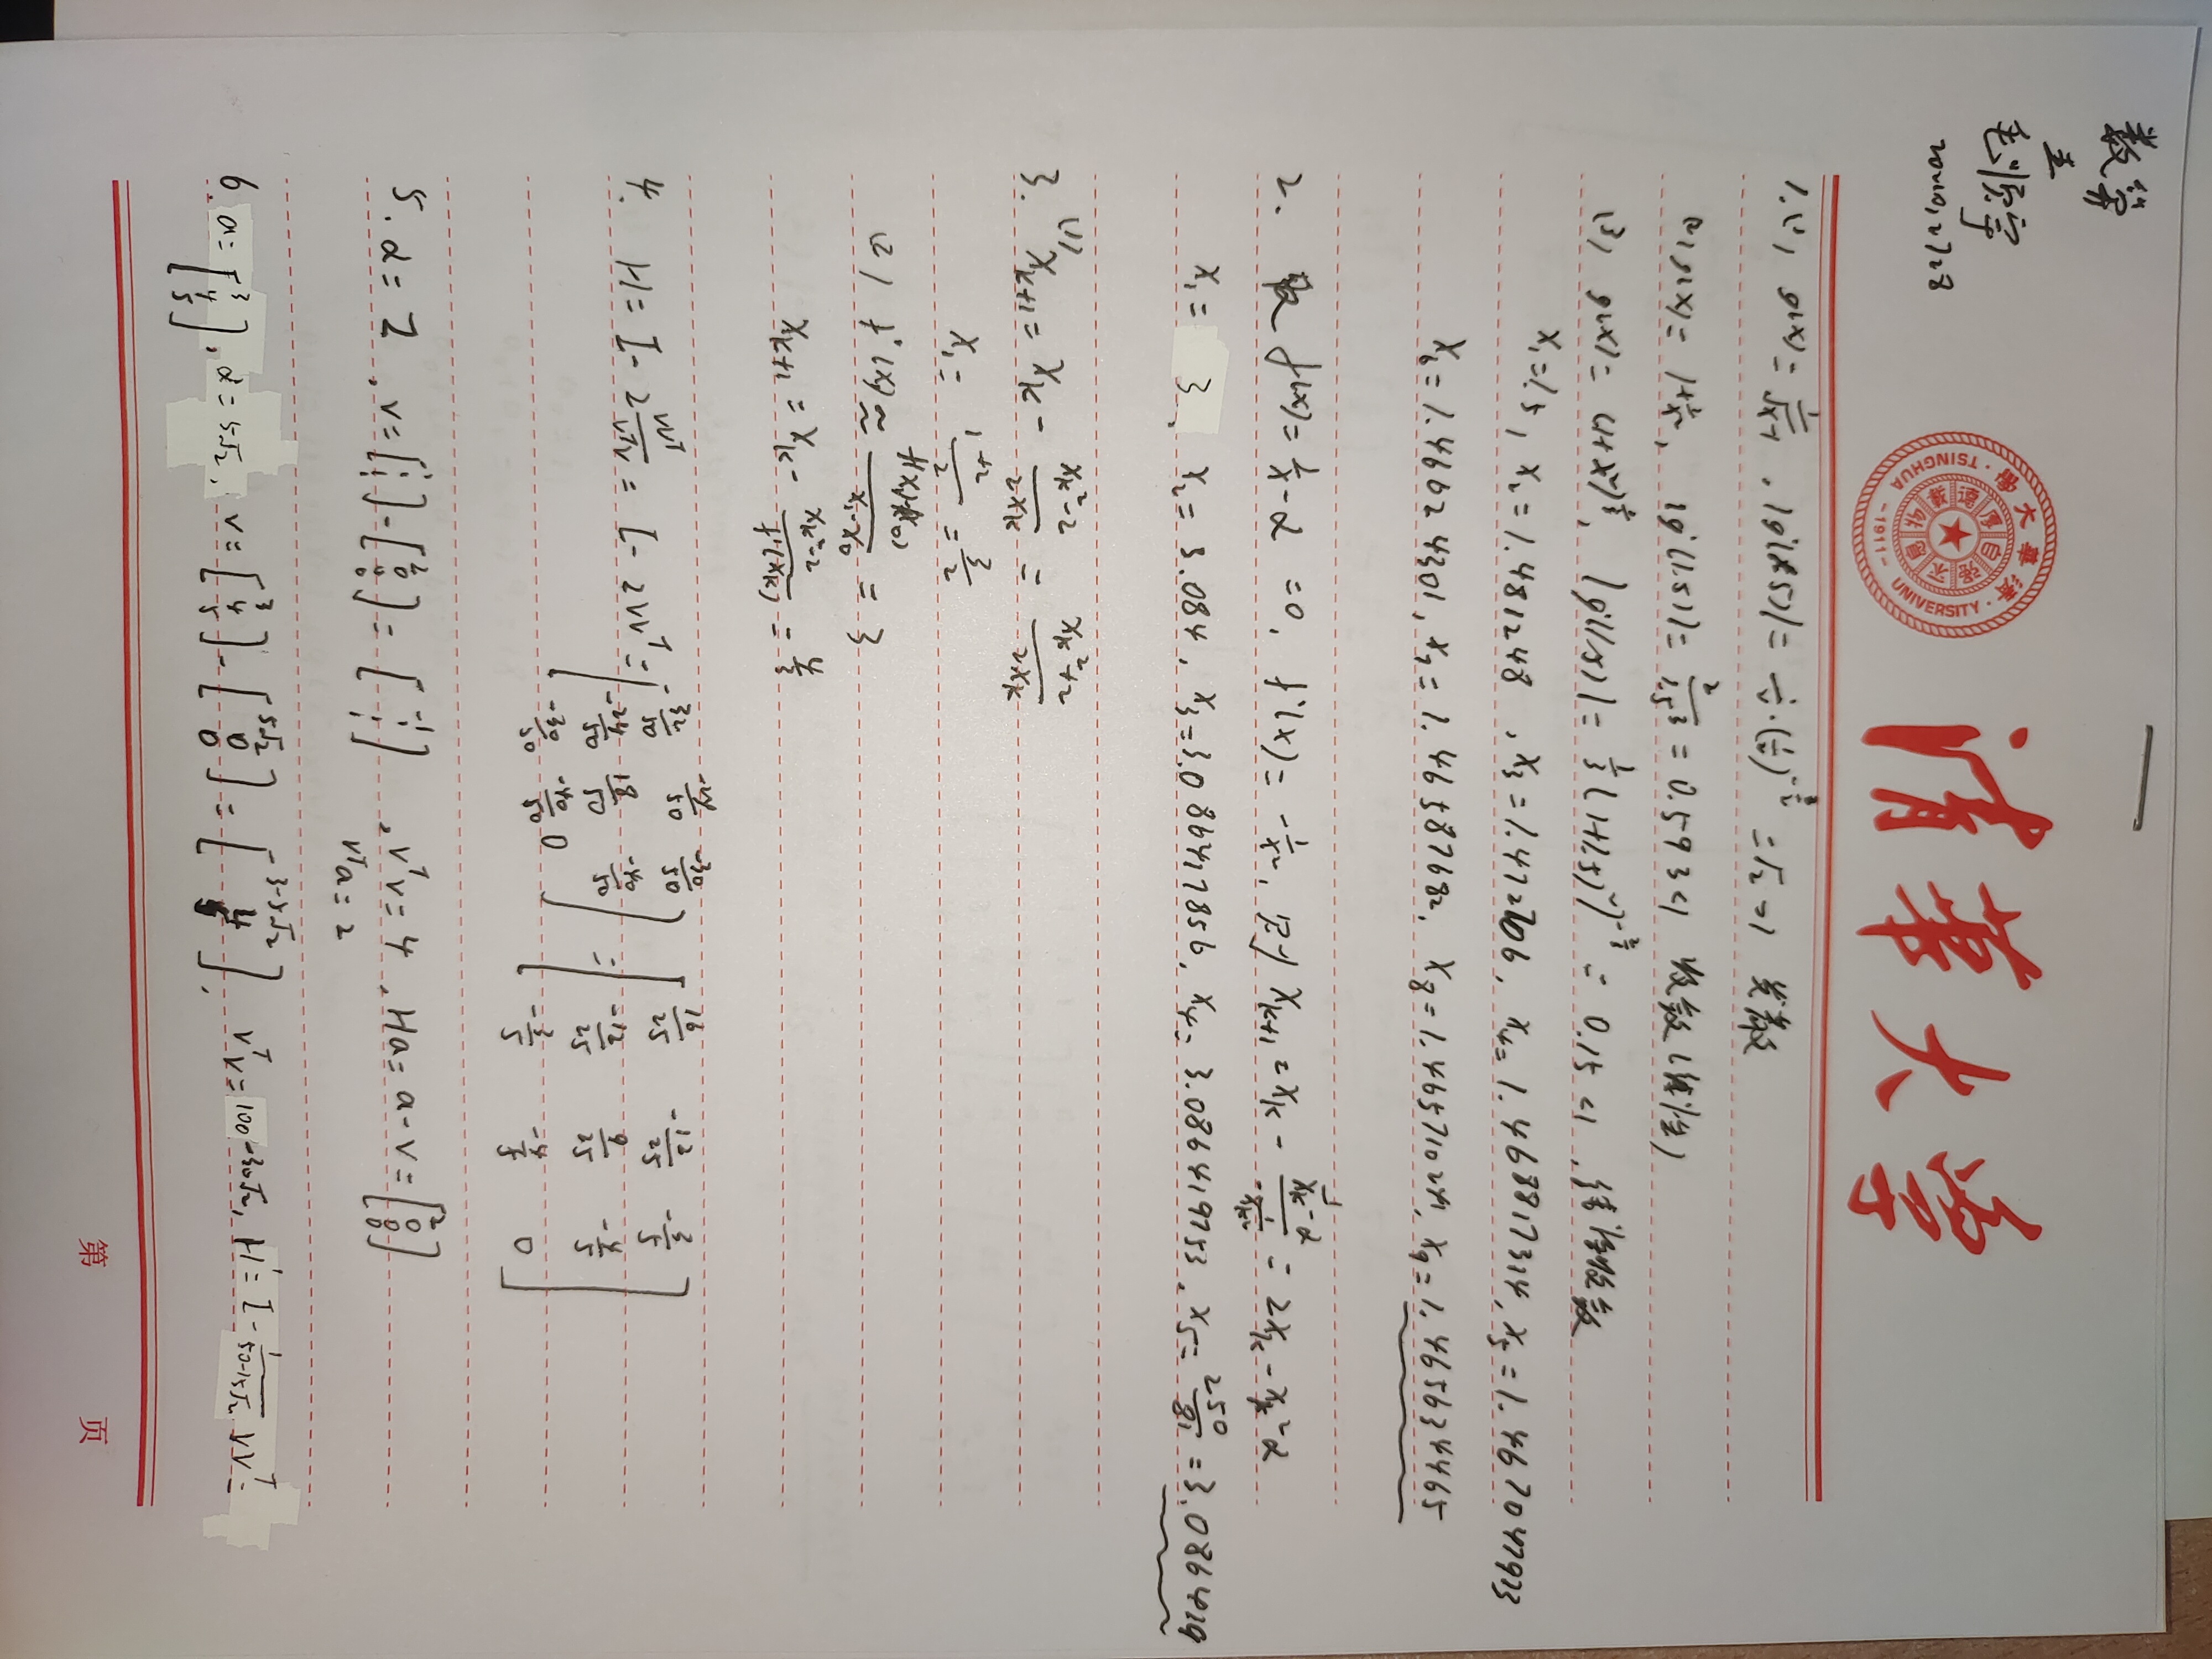 数算
毛顺宇
清華大学
清華大學
TSINGHUA UNIVERSITY
-1911-
自强不息
厚德載物
1.(1) g(x)=1/√(x-1) , |g'(1.5)|= 1/2·(1/2)^(-3/2) =√2>1 发散
(2) g(x)= 1+1/x², |g'(1.5)|= 2/1.5³ = 0.593<1 收敛(线性)
(3) g(x)= (1+x²)^(1/3), |g'(1.5)|= 1/3(1+1.5²)^(-2/3) = 0.15<1 , 线性收敛
x₁=1.5, x₂=1.481248 , x₃=1.472706, x₄=1.468817314, x₅=1.467047973
x₆=1.46624301, x₇=1.46587682, x₈=1.465710241, x₉=1.465634465
2. 取 f(x)=1/x-α =0, f'(x)=-1/x², 则 x_{k+1}=x_k - (1/x_k-α)/(-1/x_k²) = 2x_k-x_k²α
x₁= 3 , x₂=3.084, x₃=3.086417856, x₄=3.086419753, x₅=250/81=3.086419
3. (1) x_{k+1}=x_k - (x_k²-2)/(2x_k) = (x_k²+2)/(2x_k)
x₁= (1+2)/2 = 3/2
(2) f'(x₁)≈ (f(x₁)-f(x₀))/(x₁-x₀) = 3
x_{k+1}=x_k - (x_k²-2)/f'(x_k) = 4/3
4. H= I-2 vvᵀ/vᵀv = I-2vvᵀ= [32/50 -24/50 -30/50; -24/50 18/50 -40/50; -30/50 -40/50 0] = [16/25 -12/25 -3/5; -12/25 9/25 -4/5; -3/5 -4/5 0]
5. α=2 , v=[1 1 1 1]-[2 0 0 0]=[-1 1 1 1] , vᵀv=4 , Ha=a-v=[2 0 0 0]
vᵀa=2
6. a=[3 4 5], α=5√2, v=[3 4 5]-[5√2 0 0]=[3-5√2 4 5], vᵀv=100-30√2, H=I-1/(50-15√2) vvᵀ=
第 页